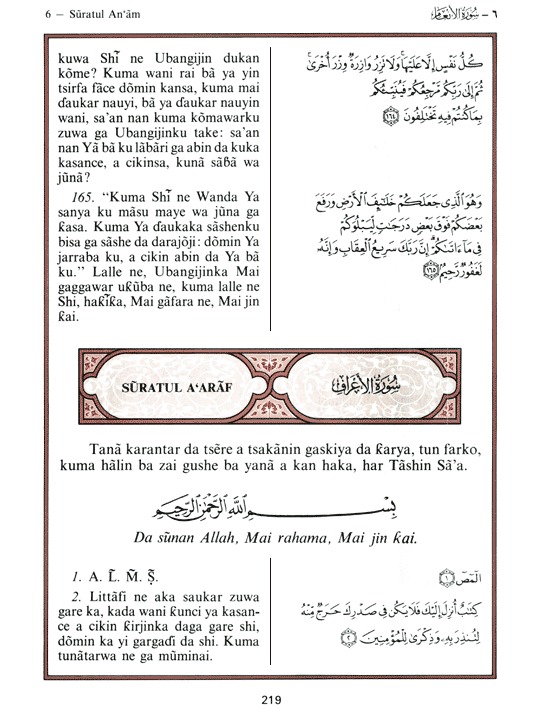 6 — Sūratul An‘ām
٦ – سُورَةُ الأَنْعَام
kuwa Shĩ ne Ubangijin dukan
kōme? Kuma wani rai bã ya yin
tsirfa fãce dõmin kansa, kuma mai
ɗaukar nauyi, bã ya ɗaukar nauyin
wani, sa'an nan kuma kõmawarku
zuwa ga Ubangijinku take: sa'an
nan Yã bã ku lãbãri ga abin da kuka
kasance, a cikinsa, kunã sãɓã wa
jũnã?
كُلُّ نَفْسٍ إِلَّا عَلَيْهَا وَلَا تَزِرُ وَازِرَةٌ وِزْرَ أُخْرَىٰ
ثُمَّ إِلَىٰ رَبِّكُم مَّرْجِعُكُمْ فَيُنَبِّئُكُم
بِمَا كُنتُمْ فِيهِ تَخْتَلِفُونَ ١٦٤
165. “Kuma Shĩ ne Wanda Ya
sanya ku mãsu maye wa jũna ga
ƙasa. Kuma Ya ɗaukaka sãshenku
bisa ga sãshe da darajõji: dõmin Ya
jarraba ku, a cikin abin da Ya bã
ku.” Lalle ne, Ubangijinka Mai
gaggawar uƙũba ne, kuma lalle ne
Shi, haƙĩƙa, Mai gãfara ne, Mai jin
ƙai.
وَهُوَ الَّذِي جَعَلَكُمْ خَلَائِفَ الْأَرْضِ وَرَفَعَ
بَعْضَكُمْ فَوْقَ بَعْضٍ دَرَجَاتٍ لِّيَبْلُوَكُمْ
فِي مَا آتَاكُمْ إِنَّ رَبَّكَ سَرِيعُ الْعِقَابِ وَإِنَّهُ
لَغَفُورٌ رَّحِيمٌ ١٦٥
SŨRATUL A‘ARÃF
سُورَةُ الأَعْرَافِ
Tanã karantar da tsẽre a tsakãnin gaskiya da ƙarya, tun farko,
kuma hãlin ba zai gushe ba yanã a kan haka, har Tãshin Sã'a.
بِسْمِ اللَّهِ الرَّحْمَٰنِ الرَّحِيمِ
Da sũnan Allah, Mai rahama, Mai jin ƙai.
1. A. L̃. M̃. Ṣ̃.
المص ١
2. Littãfi ne aka saukar zuwa
gare ka, kada wani ƙunci ya kasan-
ce a cikin ƙirjinka daga gare shi,
dõmin ka yi gargaɗi da shi. Kuma
tunãtarwa ne ga mũminai.
كِتَابٌ أُنزِلَ إِلَيْكَ فَلَا يَكُن فِي صَدْرِكَ حَرَجٌ مِّنْهُ
لِتُنذِرَ بِهِ وَذِكْرَىٰ لِلْمُؤْمِنِينَ ٢
219